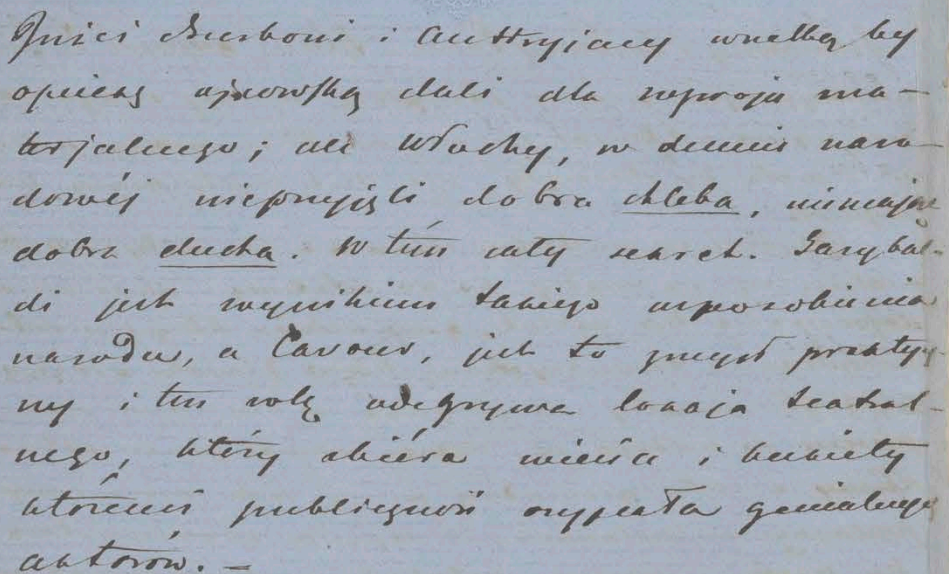 Juści Burboni i Austryjacy wszelką by
opiekę ojcowską dali dla rozwoju ma-
terjalnego; ale Włochy, w dumie naro-
dowéj nieprzyjęli dobra chleba, niemając
dobra ducha. W tém cały sekret. Garybal-
di jest wynikiem takiego usposobienia
narodu, a Cavour, jest to zmysł prakty-
ny i ten rolę odegrywa lokaja teatral-
nego, który zbiéra wieńce i bukiety
któremi publiczność osypała genialnego
aktorów. —